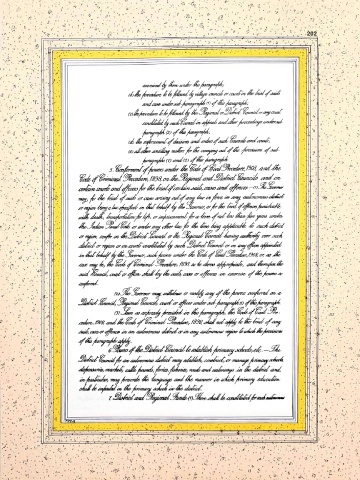 202
exercised by them under this paragraph;
(b) the procedure to be followed by village councils or courts in the trial of suits
and cases under sub-paragraph (1) of this paragraph;
(c) the procedure to be followed by the Regional or District Council or any court
constituted by such Council in appeals and other proceedings under sub-
paragraph (2) of this paragraph;
(d) the enforcement of decisions and orders of such Councils and courts;
(e) all other ancillary matters for the carrying out of the provisions of sub-
paragraphs (1) and (2) of this paragraph.
5. Conferment of powers under the Code of Civil Procedure, 1908, and the
Code of Criminal Procedure, 1898, on the Regional and District Councils and on
certain courts and officers for the trial of certain suits, cases and offences.—(1) The Governor
may, for the trial of suits or cases arising out of any law in force in any autonomous district
or region being a law specified in that behalf by the Governor, or for the trial of offences punishable
with death, transportation for life, or imprisonment for a term of not less than five years under
the Indian Penal Code or under any other law for the time being applicable to such district
or region, confer on the District Council or the Regional Council having authority over such
district or region or on courts constituted by such District Council or on any officer appointed
in that behalf by the Governor, such powers under the Code of Civil Procedure, 1908, or, as the
case may be, the Code of Criminal Procedure, 1898, as he deems appropriate, and thereupon the
said Council, court or officer shall try the suits, cases or offences in exercise of the powers so
conferred.
(2) The Governor may withdraw or modify any of the powers conferred on a
District Council, Regional Council, court or officer under sub-paragraph (1) of this paragraph.
(3) Save as expressly provided in this paragraph, the Code of Civil Pro-
cedure, 1908, and the Code of Criminal Procedure, 1898, shall not apply to the trial of any
suits, cases or offences in an autonomous district or in any autonomous region to which the provisions
of this paragraph apply.
6. Powers of the District Council to establish primary schools, etc.—The
District Council for an autonomous district may establish, construct, or manage primary schools,
dispensaries, markets, cattle pounds, ferries, fisheries, roads and waterways in the district and,
in particular, may prescribe the language and the manner in which primary education
shall be imparted in the primary schools in the district.
7. District and Regional Funds.—(1) There shall be constituted for each autonomous